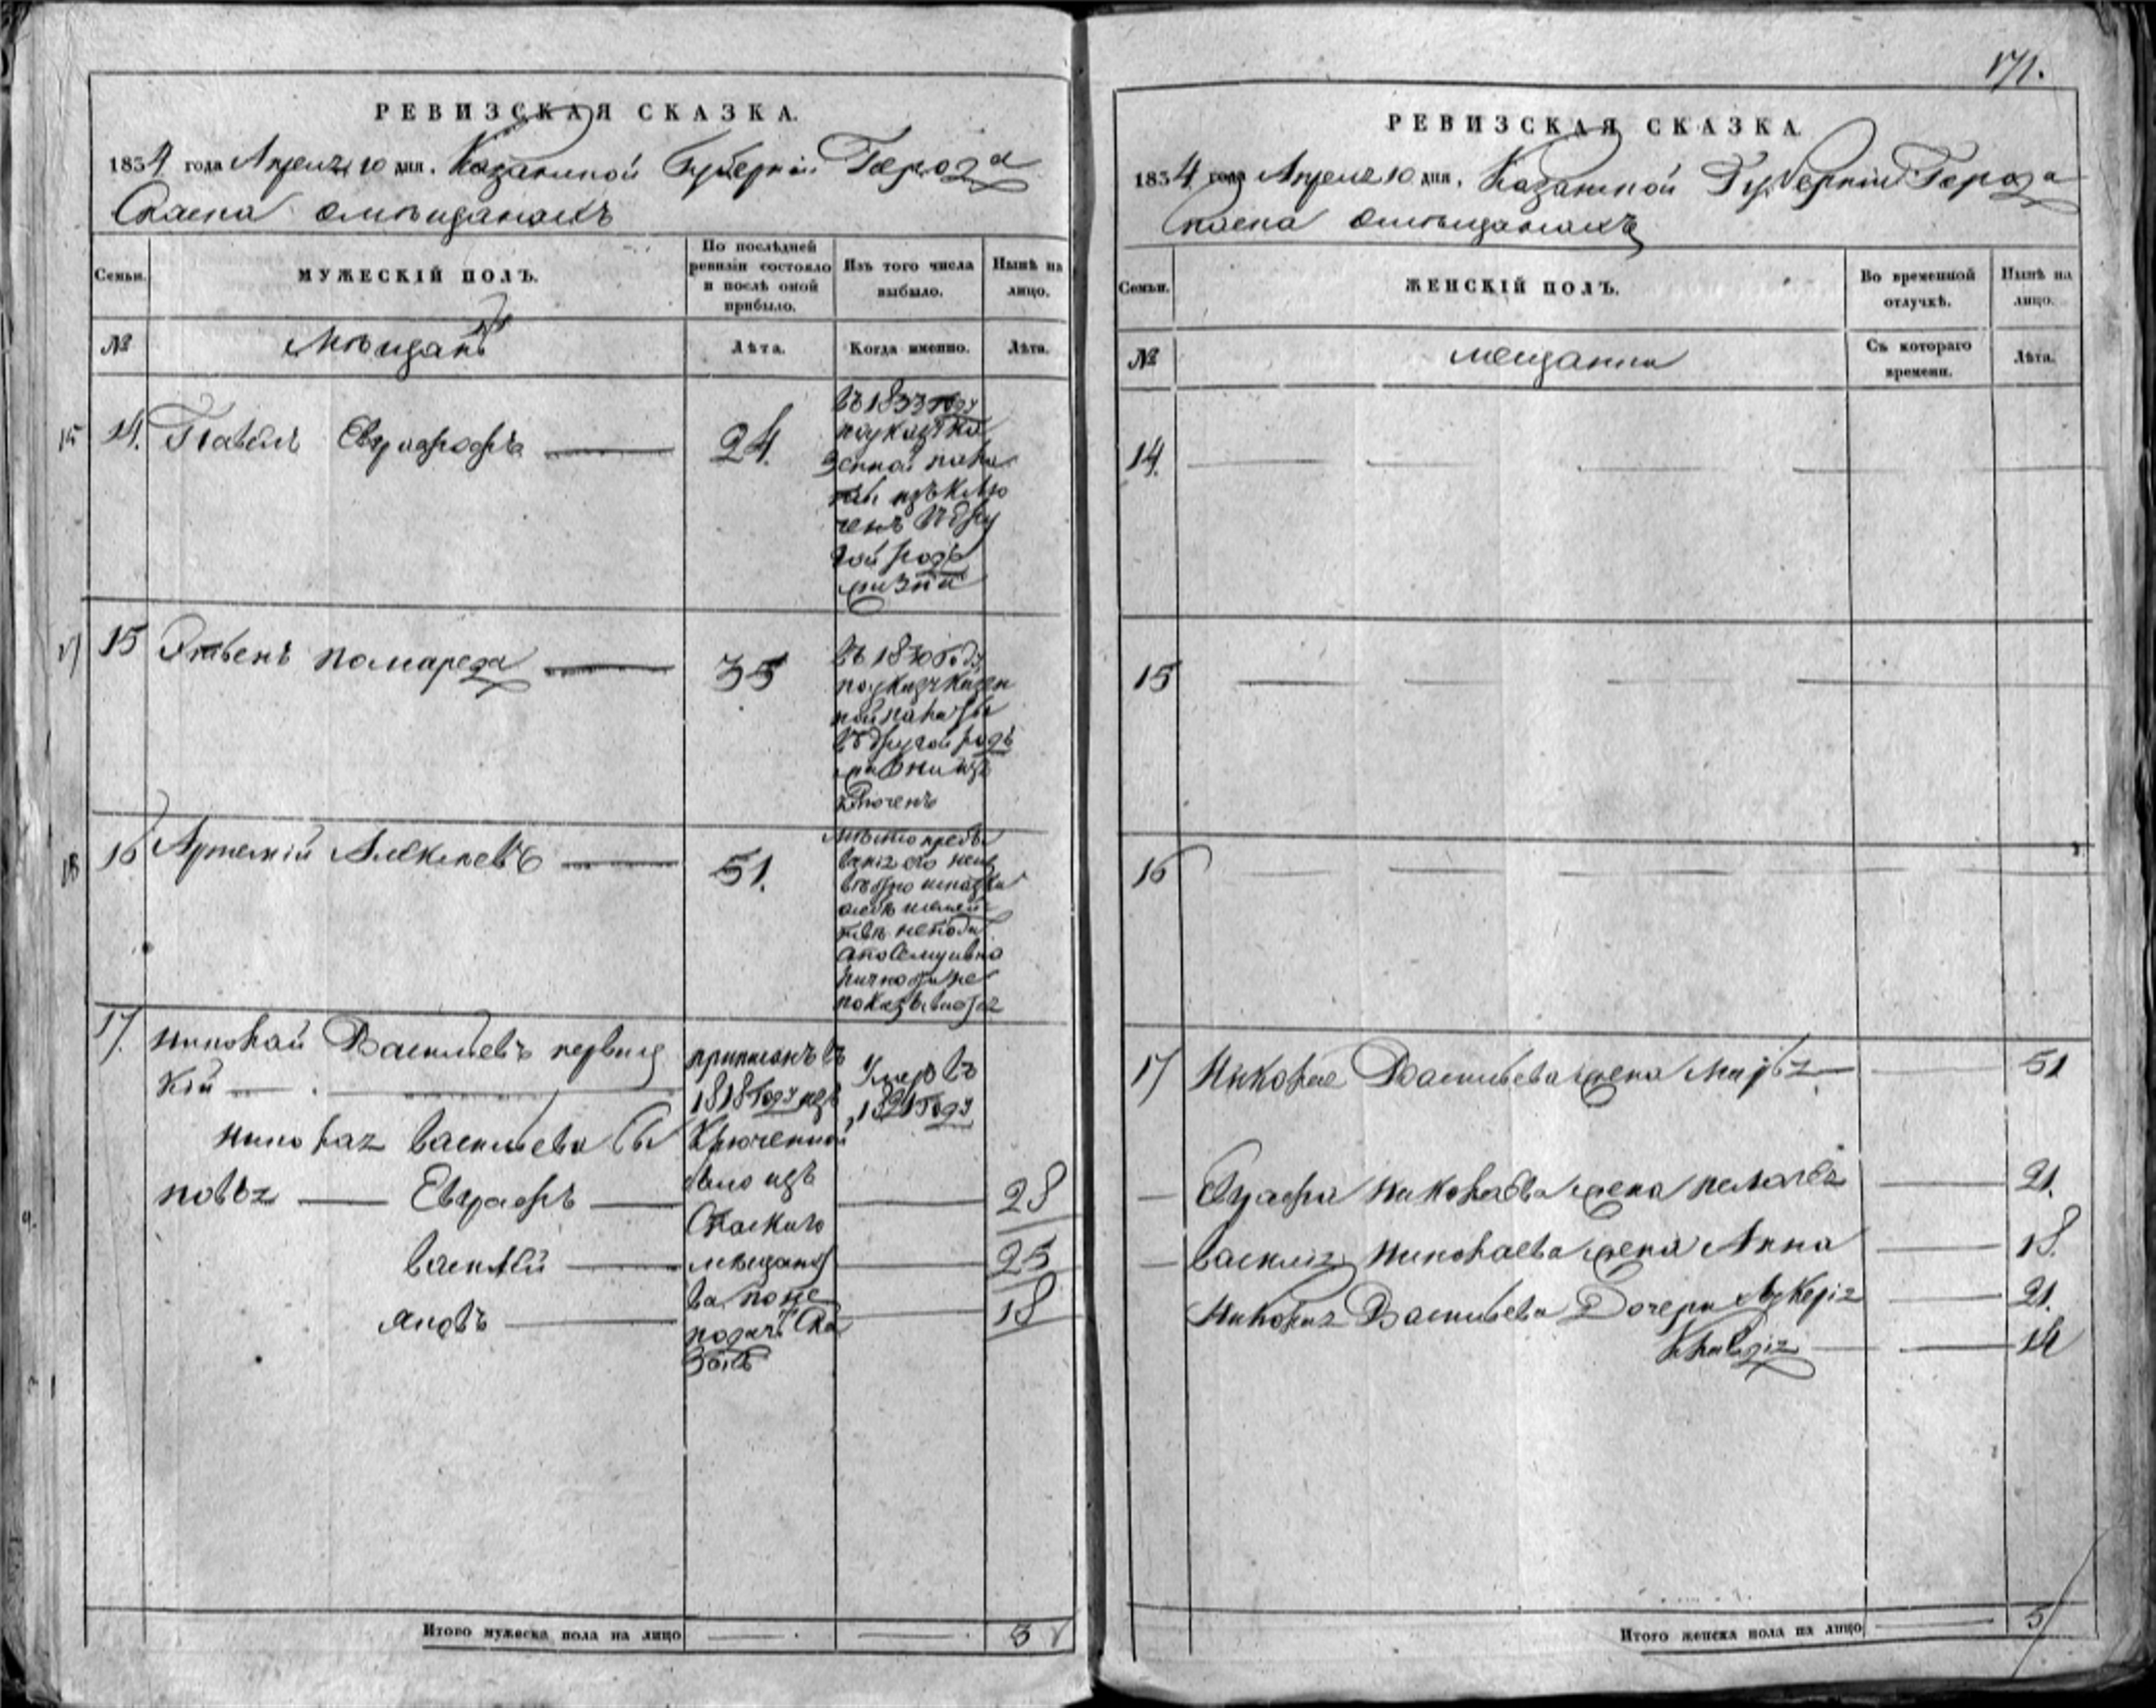 РЕВИЗСКАЯ СКАЗКА.
1834 года Апреля 10 дня. Казанской Губернiи Города
Спаска омѣщанахъ
Семьи.
МУЖЕСКIЙ ПОЛЪ.
По послѣдней ревизiи состояло и послѣ оной прибыло.
Изъ того числа выбыло.
Нынѣ на лицо.
№
Мѣщанъ
Лѣта.
Когда именно.
Лѣта.
14. Павелъ 24.
въ 1833 году
по указу Ка
зенной пала
ты изъклю
ченъ Вдру
гой родъ
жизни
15 35
въ 1830 году
по указу Казен
ной палаты
въ другой родъ
жизни изъ
ключенъ
16 Артемiй Алексеевъ 51.
показывается
17. Николай Васильевъ
кiй
приписанъ въ
1818 году изъ
Умеръ въ
1821 году
Николая Васильева Сы
новья Евграфъ 28
Василiй 25
Яковъ 18
Спаскаго
мѣщанс
ва после
подачи Ска
зокъ
Итого мужеска пола на лицо 3
171.
РЕВИЗСКАЯ СКАЗКА.
1834 года Апреля 10 дня. Казанской Губернiи Города
Спаска омѣщанахъ
Семьи.
ЖЕНСКIЙ ПОЛЪ.
Во временной отлучкѣ.
Нынѣ на лицо.
№
мещанки
Съ котораго времени.
Лѣта.
14.
15
16
17 Николая Васильева жена Марья 51
Евграфа Николаева жена Пелагея 21.
Василiя Николаева жена Анна 18.
Николая Васильева Дочери Лукерiя 21.
Клавдiя 14
Итого женска пола на лицо 5